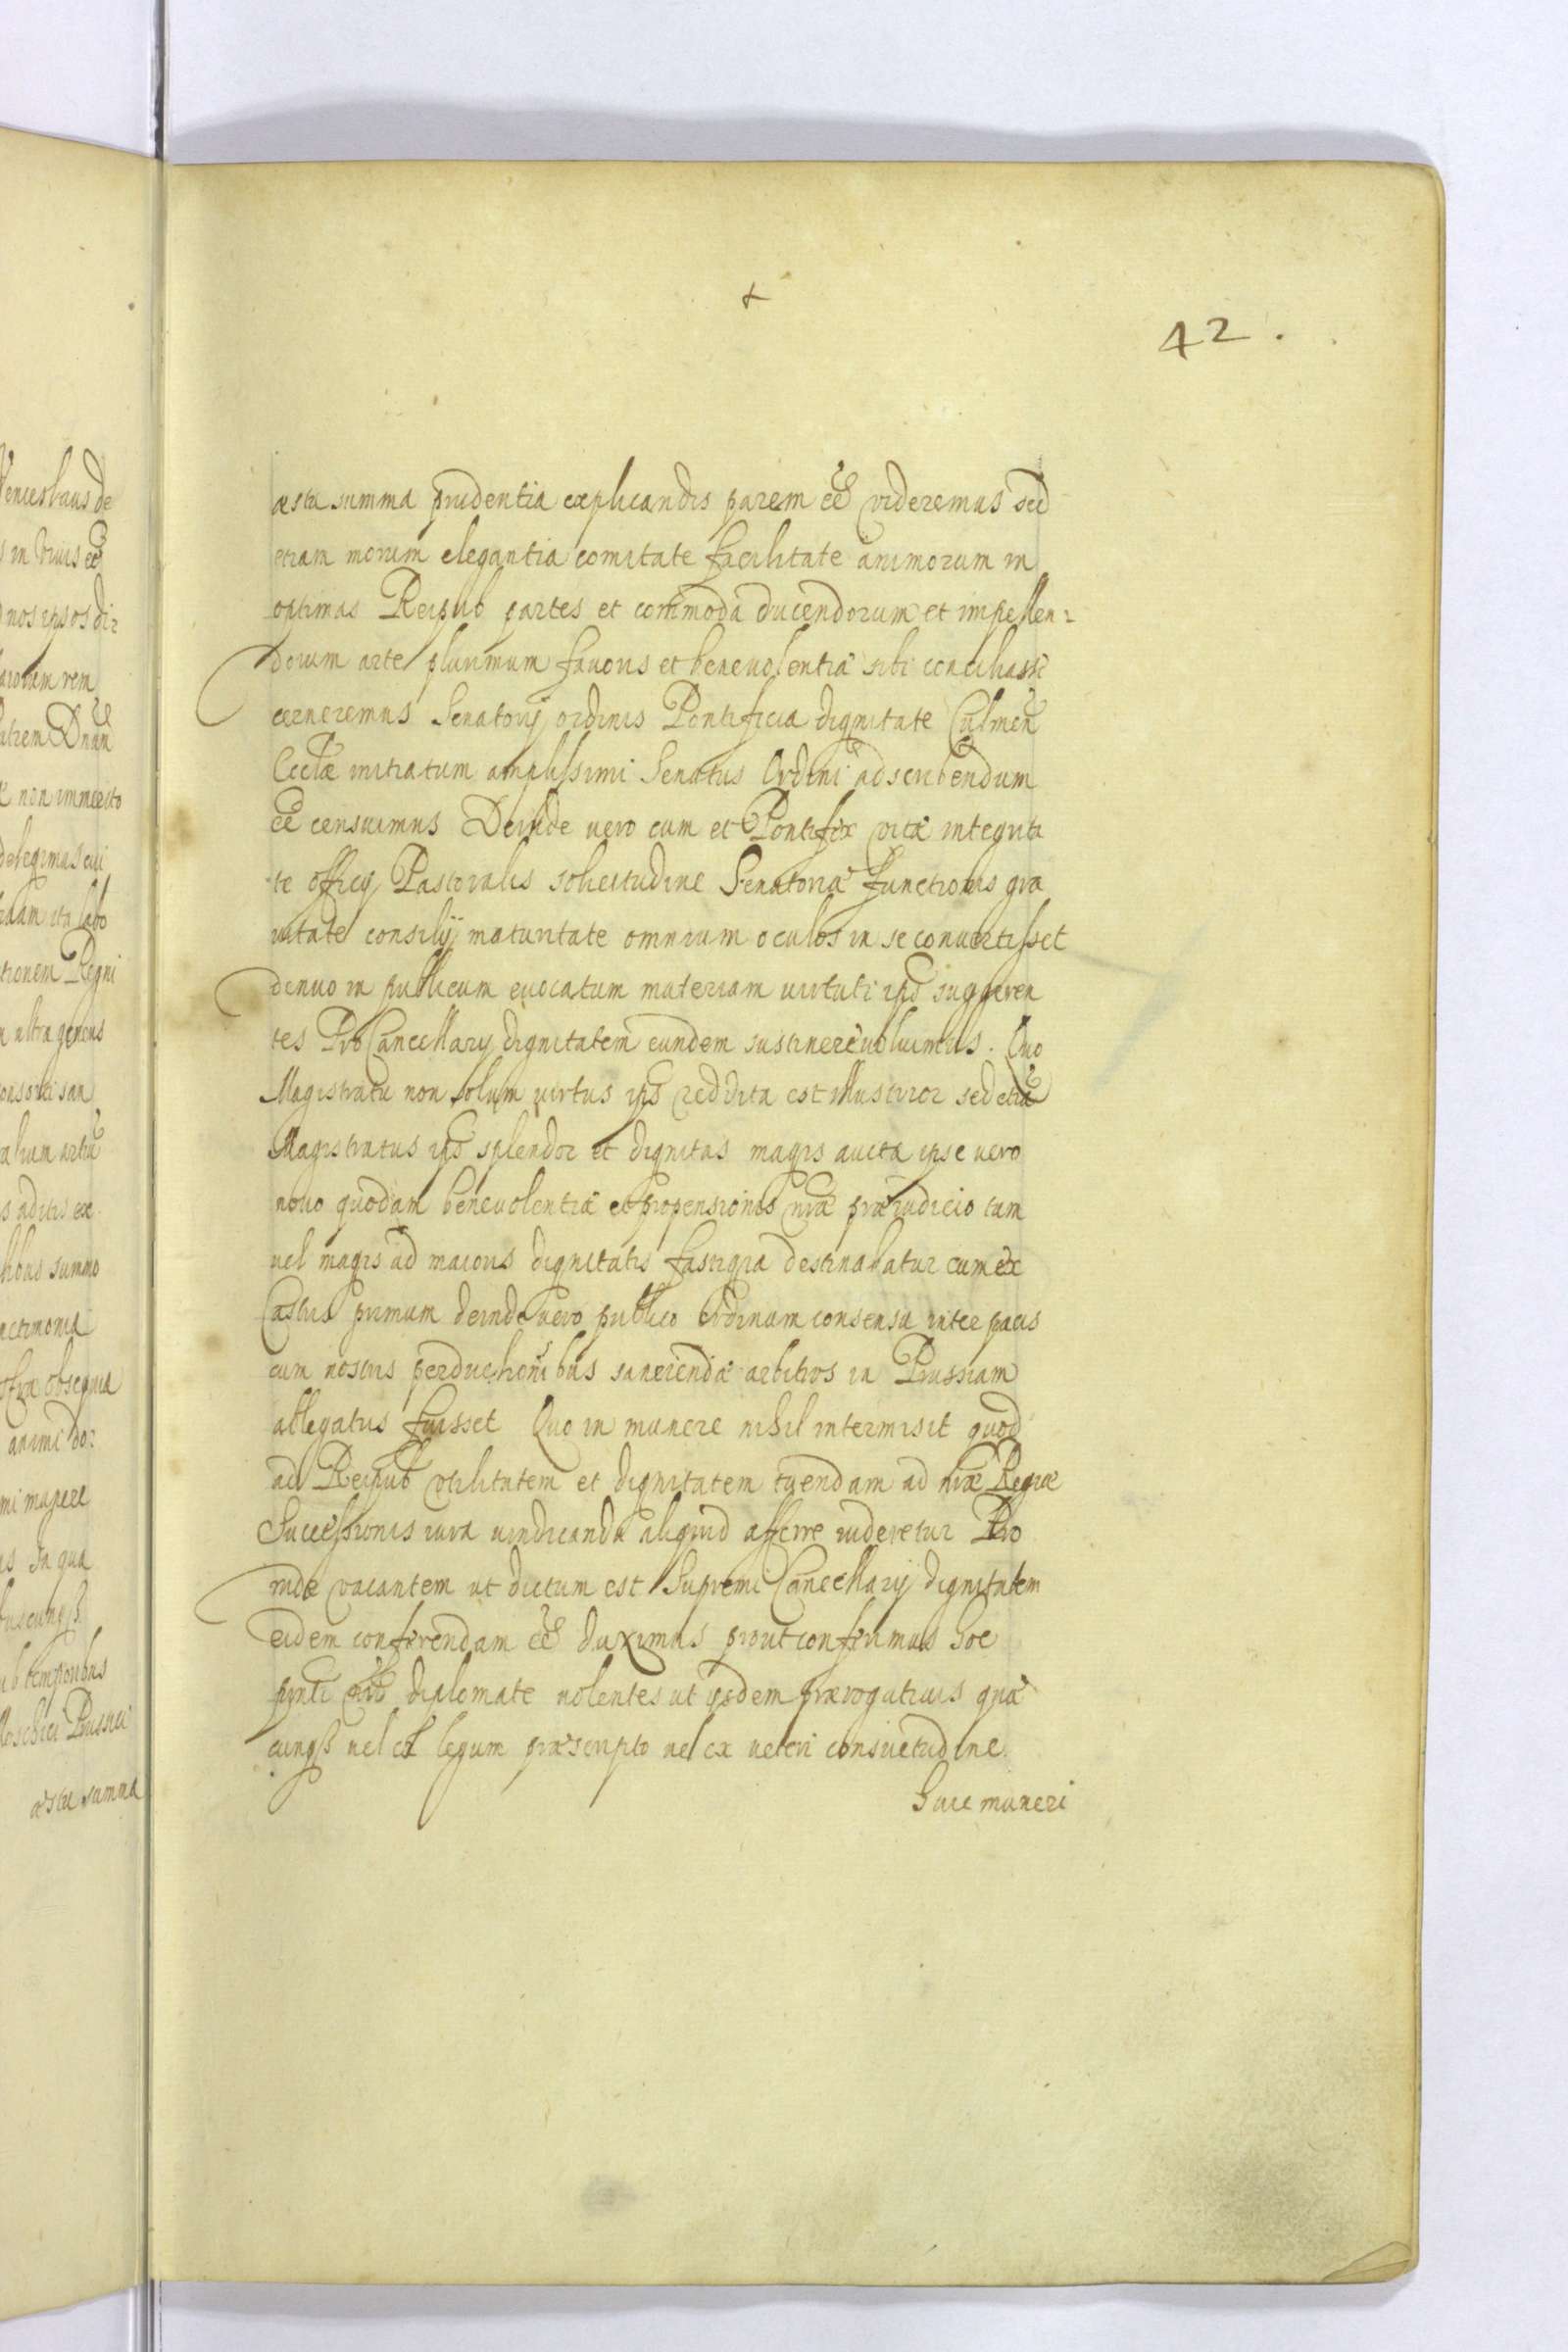 +
42.
æstu summa prudentia explicandis parem eē videremus sed
etiam morum elegantia comitate facilitate animorum in
optimas Reipub partes et commoda ducendorum et impellen-
dorum arte plurimum fauoris et beneuolentiæ sibi conciliasse
cerneremus Senatorij ordinis Pontificia dignitate Culmen
Eccłæ initiatum amplissimi Senatus Ordini adscribendum
eē censuimus Deinde vero cum et Pontifex vitæ integrita
te officij Pastoralis solicitudine Senatoriæ functionis gra
uitate consilij maturitate omnium oculos in se conuertisset
denuo in publicum euocatum materiam uirtuti ips suggeren
tes ProCancellarij dignitatem eundem sustinere uoluimus. Quo
Magistratu non solum uirtus ips reddita est illustrior sed etiā
Magistratus ips splendor et dignitas magis aucta ipse uero
nouo quodam beneuolentiæ et propensionis nræ præiudicio tam
uel magis ad maioris dignitatis fastigia destinabatur cum ex
Castris primum deinde uero publico Ordinum consensu inter pacis
cum nostris perduellionibus sanciendæ arbitros in Prussiam
allegatus fuisset Quo in munere nihil intermisit quod
ad Reipub vtilitatem et dignitatem tuendam ad nræ Regiæ
Successionis iura uindicanda aliquid afferre uideretur Pro
inde vacantem ut dictum est Supremi Cancellarij dignitatem
eidem conferendam eē duximus prout conferimus hoc
pnti nro diplomate uolentes ut ijsdem prærogatiuis quæ
cunqȝ uel ex legum præscripto uel ex ueteri consuetudine
huic muneri